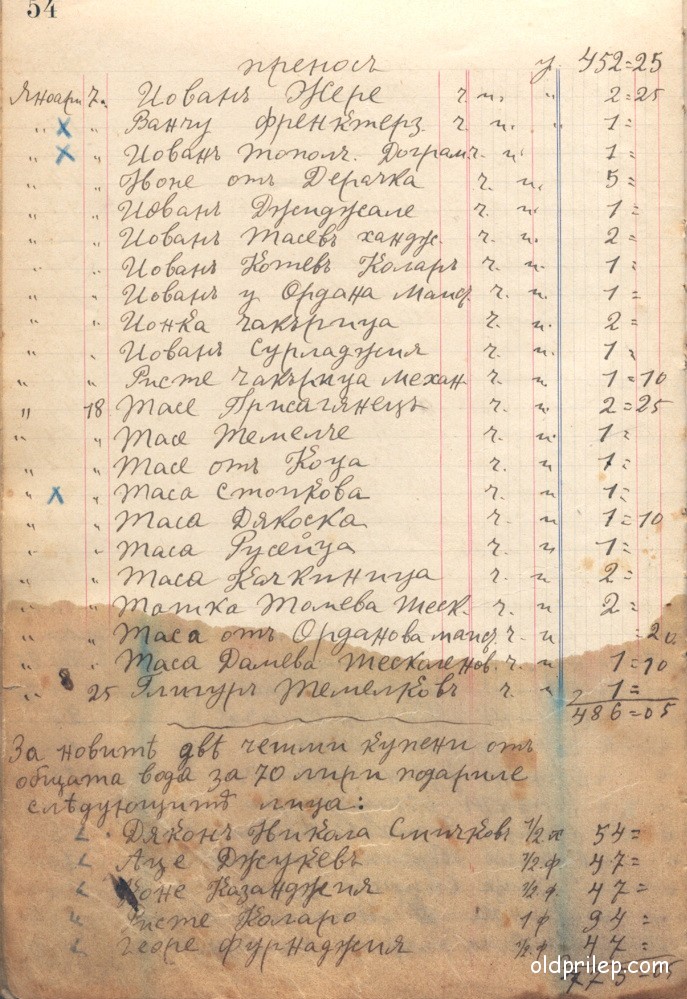 54
преносъ у 452=25
Януари 7. Иованъ Жере г. н. " 2=25
" " Ванчу френктерз. г. н. " 1=
" " Иованъ тополч. Дограм. г. н 1=
" " Ѝоне отъ Дерачка г. н. 5=
" " Иованъ Джиджале г. н. 1=
" " Иованъ Тасевъ хандж. г. н. 2=
" " Иованъ Котевъ Коларъ г. н. 1=
" " Иованъ у Ордана г. н. 1=
" " Ионка чакърица г. н. 2=
" " Иованъ Сурладжия г. н. 1=
" " Ристе Чакърица механ г. н. 1=10
" 18 Тасе Присагянецъ г. н. 2=25
" " Тасе Темелче г. н. 1=
" " Тасе отъ Коца г. н 1=
" " Таса Стойкова г. н 1=
" " Таса Дякоска г. н 1=10
" " Таса Русейца г. н 1=
" " Таса Качкиница г. н 2=
" " Ташка Толева Теск. г. н 2=
" " Таса отъ Орданова г. н =20
" " Таса Далева г. н 1=10
" 25 Глигуръ Темелковъ г. н 1=
486=05
За новитѣ двѣ чешми купени отъ
общата вода за 70 лири подариле
слѣдующитѣ лица:
Дяконъ Никола Смичковъ 1/2 54=
Аце Джукевъ 1/2ф 47=
Коне Казанджия 1/2ф 47=
Ристе Коларо 1ф 94=
Георе фурнаджия 1/2ф 47=
775=05
oldprilep.com